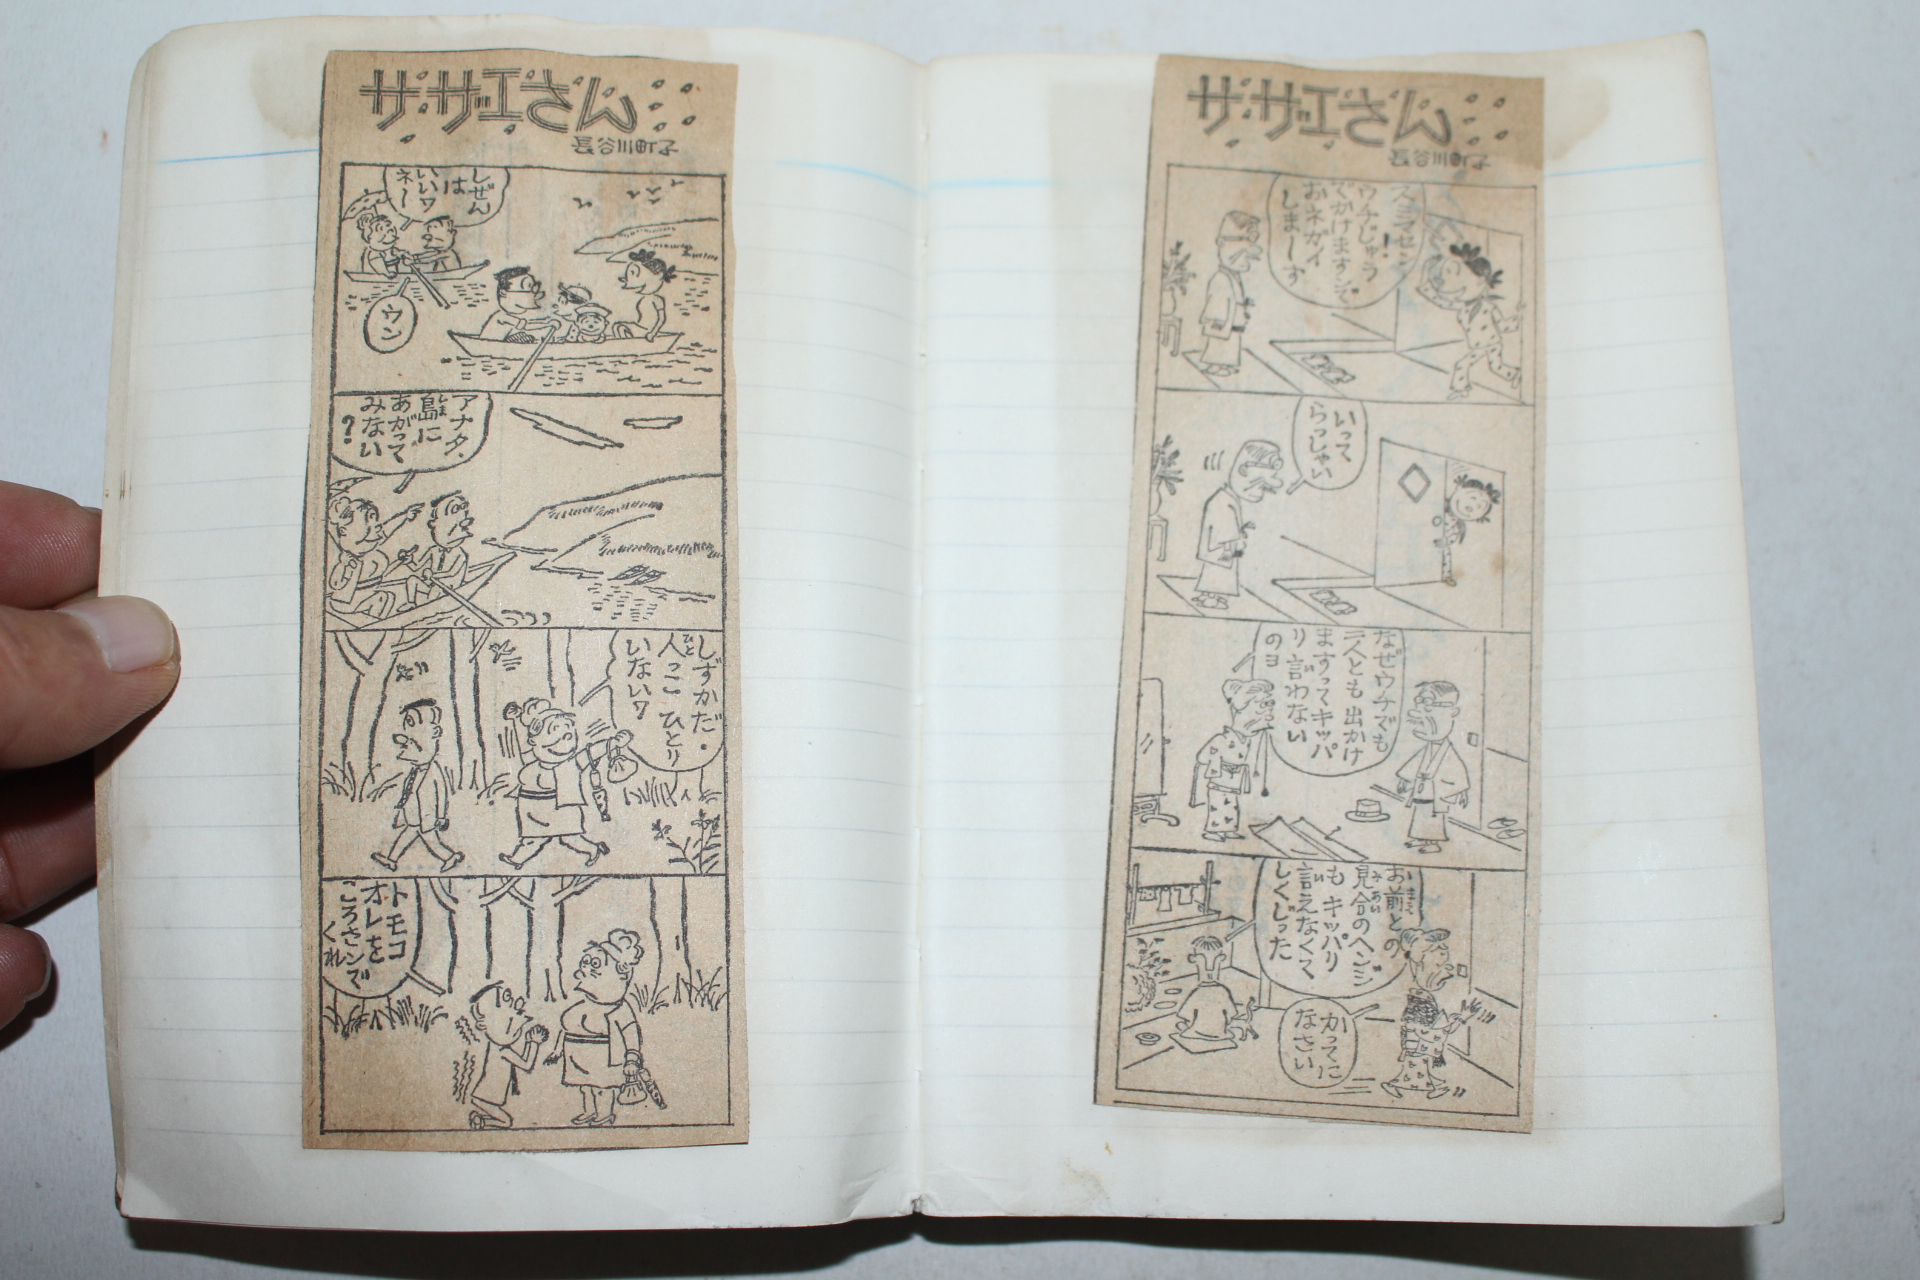 サザエさん
長谷川町子
しぜん
は
いいワ
ネ〜
ウン
アナタ・
島に
しま
あがって
みない
?
しずかだ・
人っこひとり
ひと
いないワ
トモコ
オレを
ころさンで
くれ
サザエさん
長谷川町子
スミマセン
!
ウチじゅう
でかけますンで
おネガイ
しまーす
いって
らっしゃい
なぜウチでも
二人とも出かけ
ますってキッパ
リ言わない
い
のヨ
お前との
まえ
見合のヘンジ
みあい
もキッパリ
言えなくて
い
しくじった
かってに
なさい